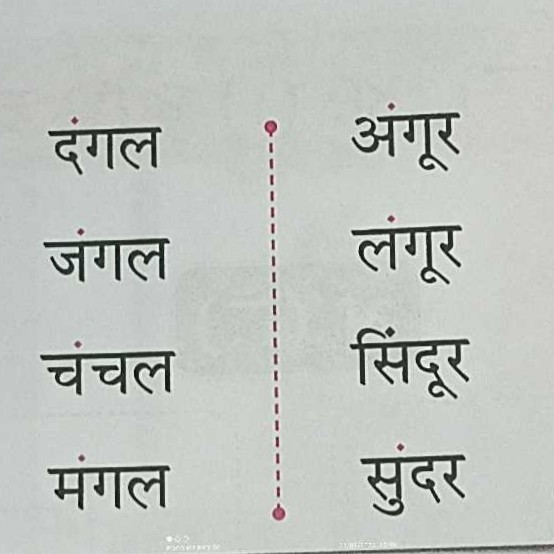 दंगल
जंगल
चंचल
मंगल
अंगूर
लंगूर
सिंदूर
सुंदर